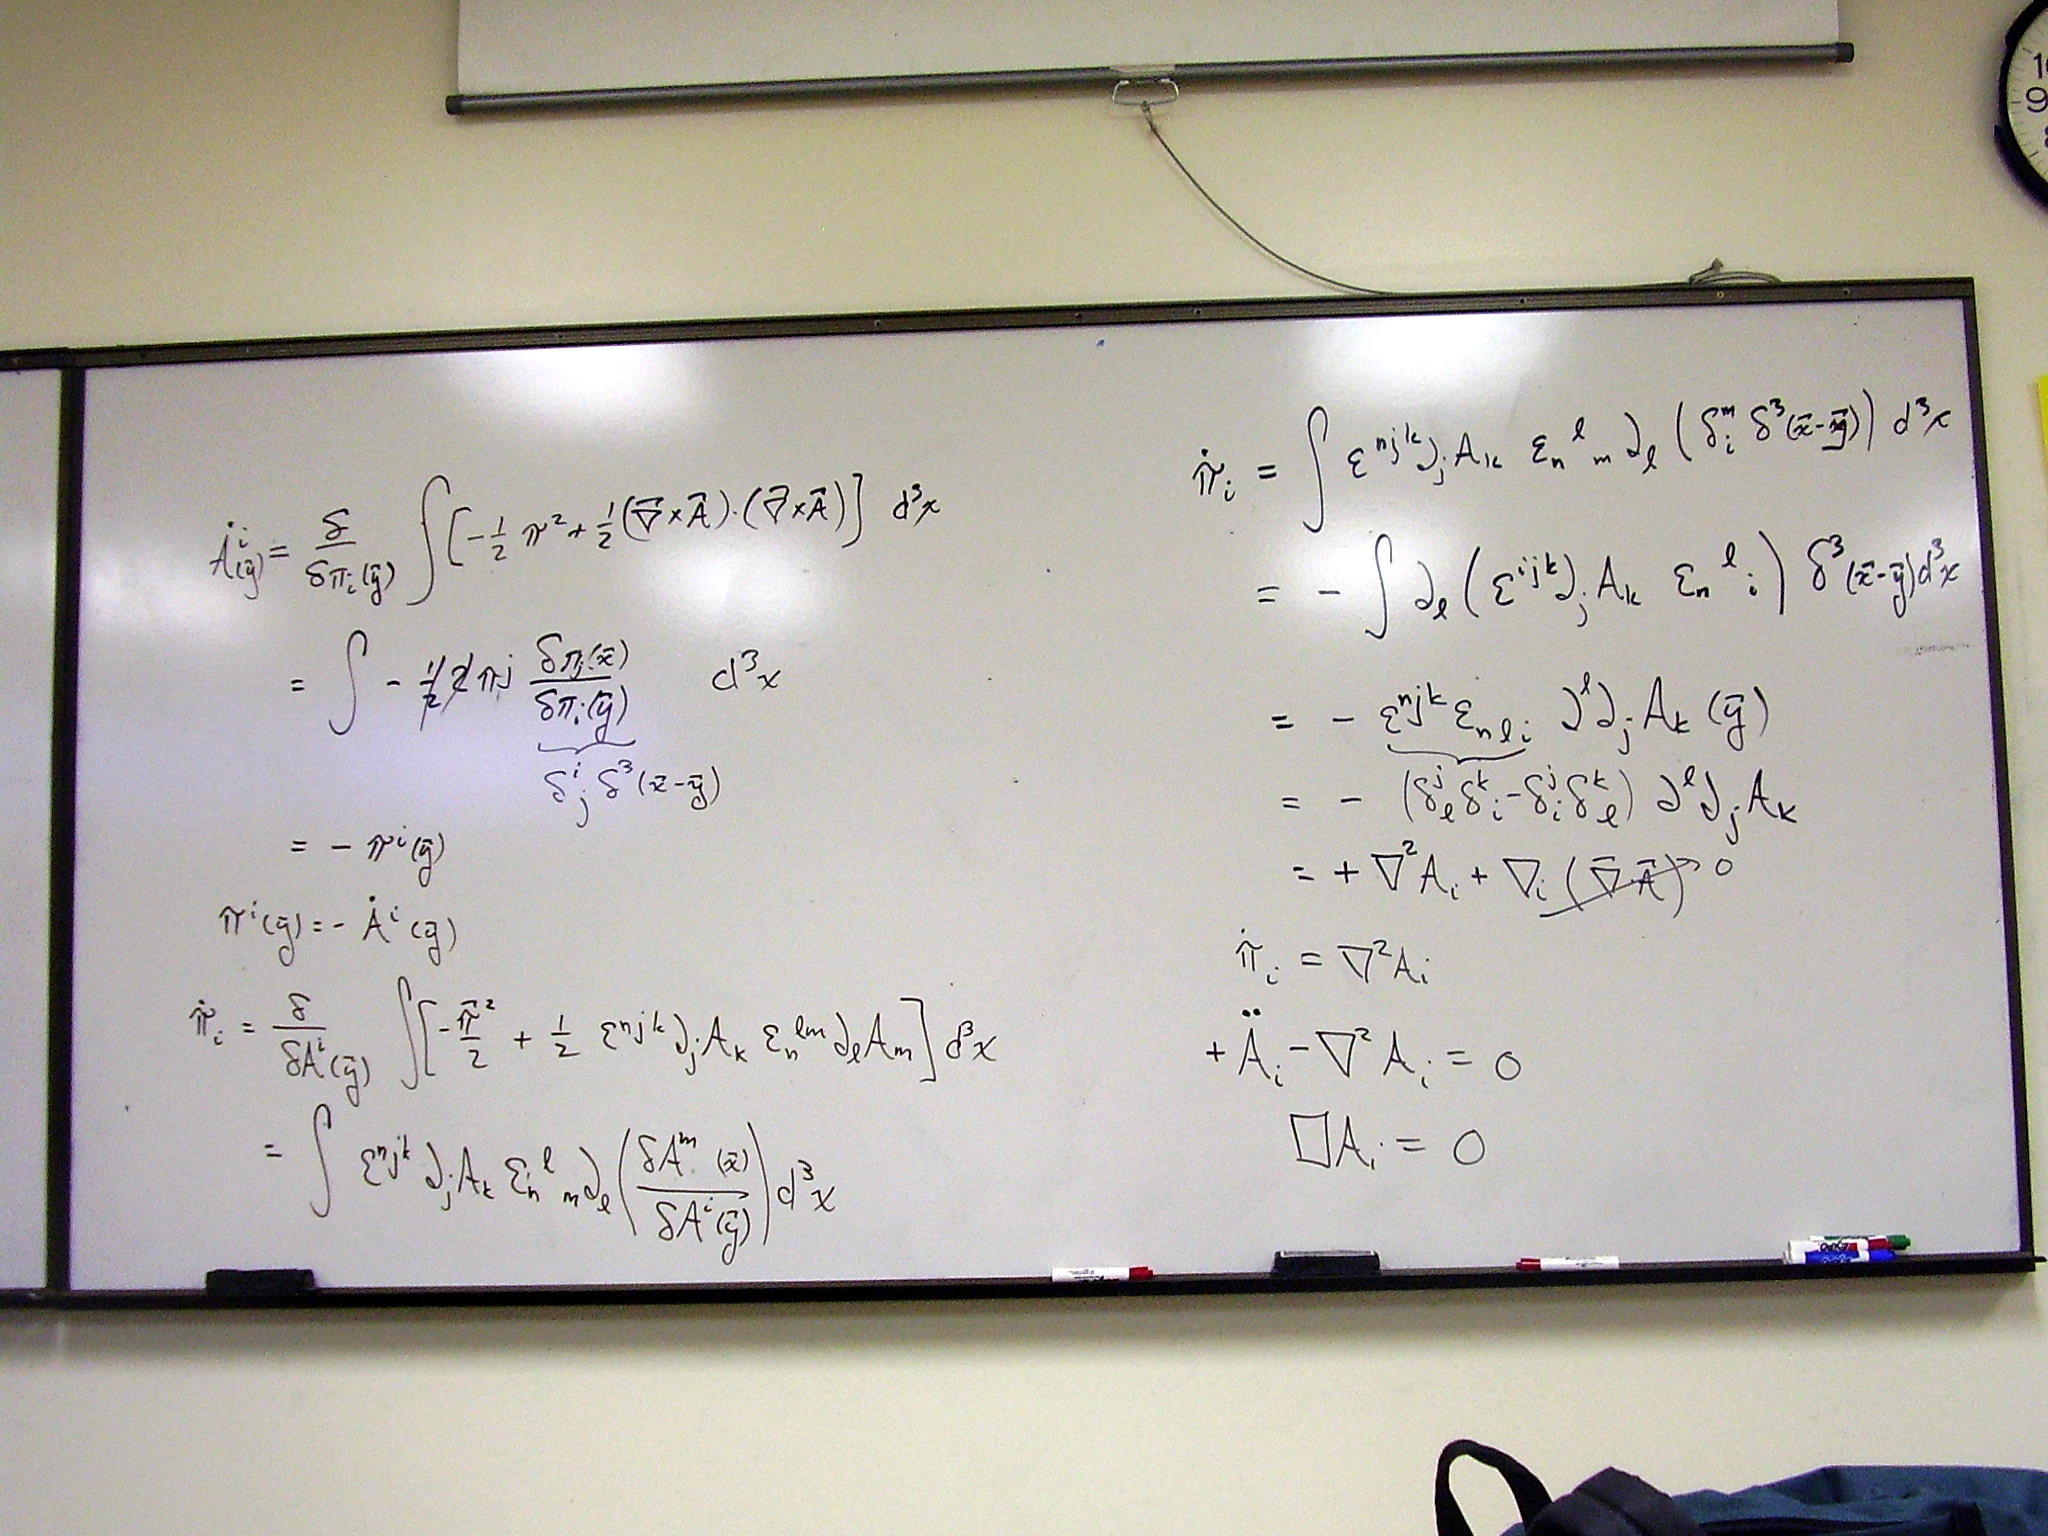 Ȧⁱ(ȳ) = δ/δπᵢ(ȳ) ∫[-½ π² + ½(∇⃗×A⃗)·(∇⃗×A⃗)] d³x
= ∫ - ½ 2 πʲ δπⱼ(x̄)/δπᵢ(ȳ) d³x
δⁱⱼ δ³(x̄-ȳ)
= - πⁱ(ȳ)
πⁱ(ȳ) = - Ȧⁱ(ȳ)
π̇ᵢ = δ/δAⁱ(ȳ) ∫[-π̄²/2 + ½ ε^{njk}∂_j A_k ε_n^{lm}∂_l A_m] d³x
= ∫ ε^{njk} ∂_j A_k ε_n^l_m ∂_l (δA^m(x̄)/δAⁱ(ȳ)) d³x
π̇ᵢ = ∫ ε^{njk}∂_j A_k ε_n^l_m ∂_l (δ^m_i δ³(x̄-ȳ)) d³x
= - ∫ ∂_l (ε^{ijk}∂_j A_k ε_n^l_i) δ³(x̄-ȳ) d³x
= - ε^{njk} ε_{nli} ∂^l ∂_j A_k (ȳ)
= - (δ^j_l δ^k_i - δ^j_i δ^k_l) ∂^l ∂_j A_k
= + ∇²Aᵢ + ∇ᵢ (∇̄·A⃗) → 0
π̇ᵢ = ∇²Aᵢ
+ Äᵢ - ∇²Aᵢ = 0
□Aᵢ = 0
10
9
8
EXPO